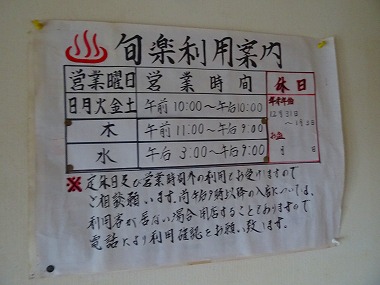 ♨旬楽利用案内
営業曜日 営業時間 休日
日月火金土 午前10:00～午后10:00 年末年始
木 午前11:00～午后9:00 12月31日～1月3日
水 午后3:00～午后9:00 お盆 月 日
※定休日及び営業時間外の利用もお受けしますので
ご相談願います。尚午后9時以降の入舘については、
利用者が居ない場合閉店することもありますので
電話により利用確認をお願い致します。